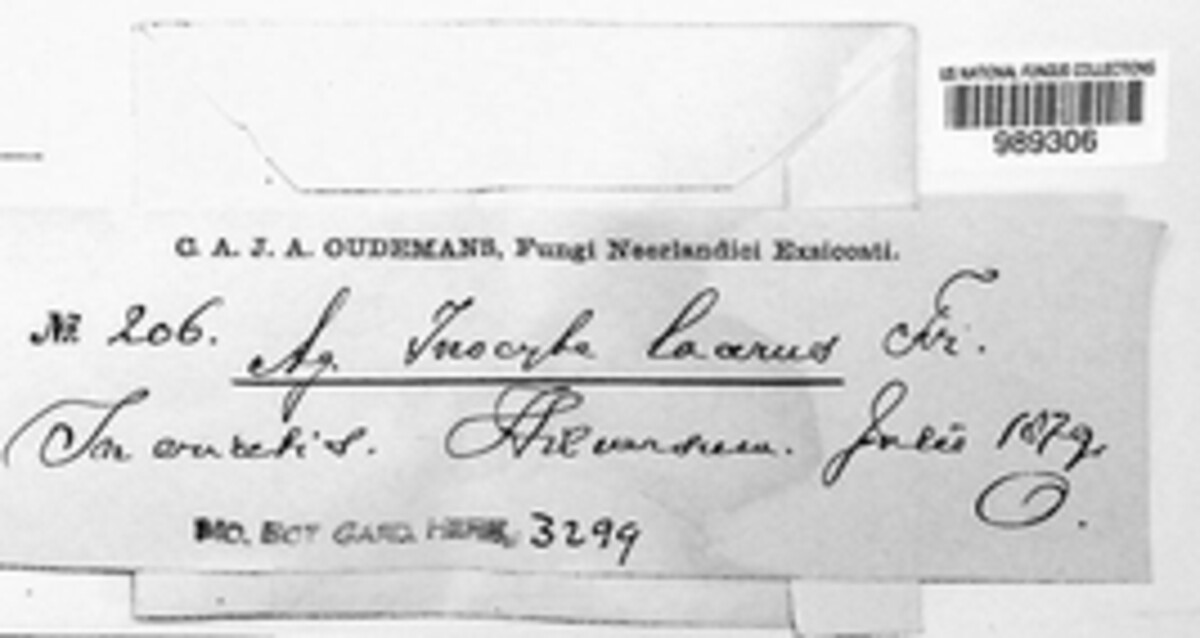 US NATIONAL FUNGUS COLLECTIONS
989306
C. A. J. A. OUDEMANS, Fungi Neerlandici Exsiccati.
No. 206. Ag. Inocybe lacerus Fr.
In ericetis. Hilversum. Julii 1879.
O.
MO. BOT GARD. HERB. 3299